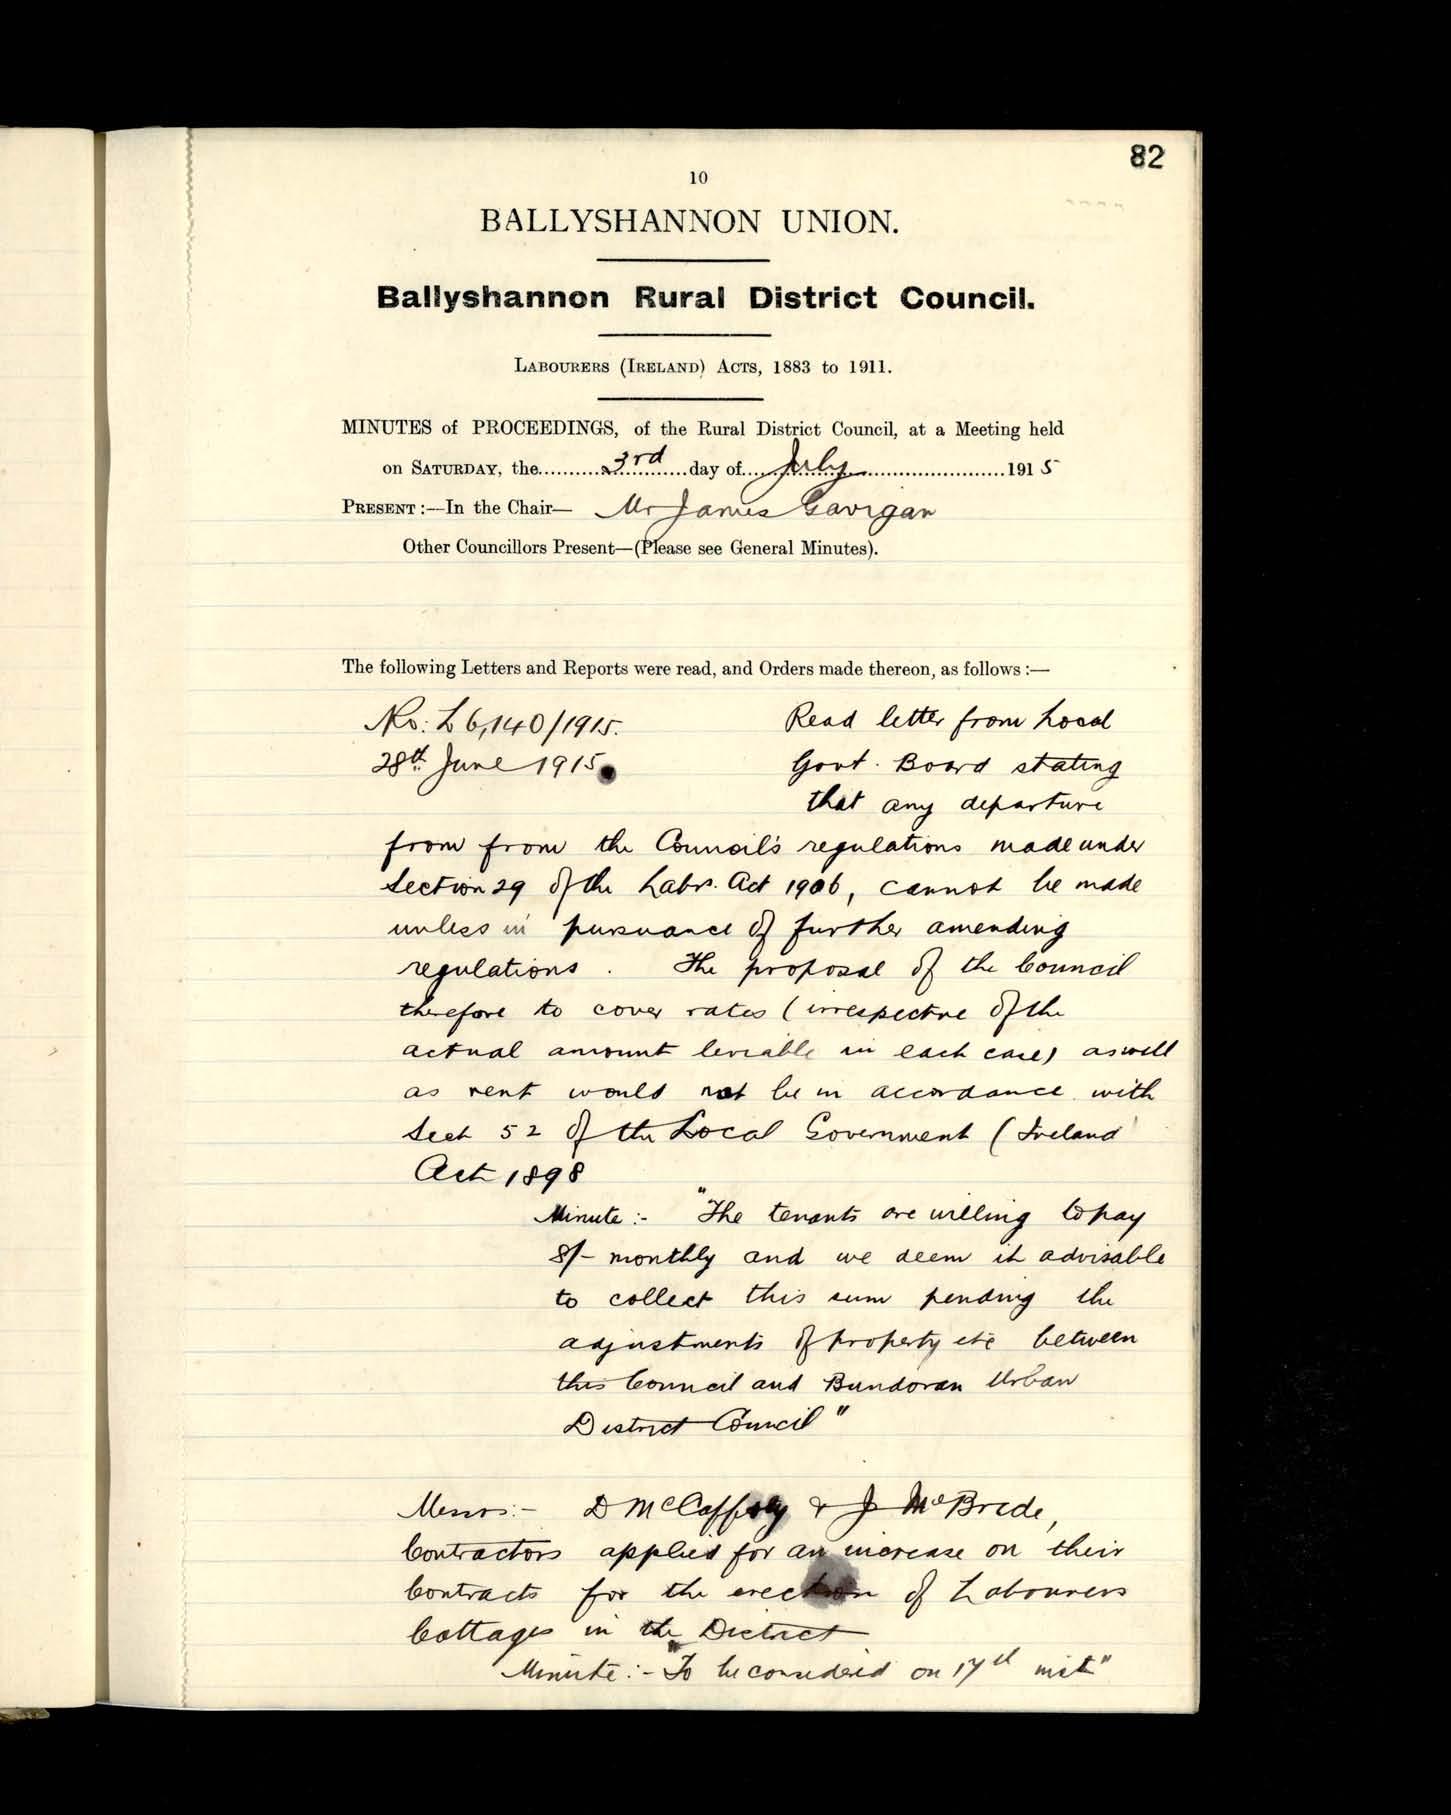 82
10
BALLYSHANNON UNION.
Ballyshannon Rural District Council.
LABOURERS (IRELAND) ACTS, 1883 to 1911.
MINUTES of PROCEEDINGS, of the Rural District Council, at a Meeting held
on SATURDAY, the 3rd day of July 1915
PRESENT:—In the Chair— Mr James Gavigan
Other Councillors Present—(Please see General Minutes).
The following Letters and Reports were read, and Orders made thereon, as follows:—
No: L 6,140/1915. Read letter from Local
28th June 1915 Govt. Board stating
that any departure
from from the Council's regulations made under
Section 29 of the Labrs. Act 1906, cannot be made
unless in pursuance of further amending
regulations. The proposal of the Council
therefore to cover rates (irrespective of the
actual amount leviable in each case) as well
as rent would not be in accordance with
Sect 52 of the Local Government (Ireland
Act 1898
Minute:- "The tenants are willing to pay
8/- monthly and we deem it advisable
to collect this sum pending the
adjustments of property etc between
this Council and Bundoran Urban
District Council"
Messrs:- D McCafferty & J McBride,
Contractors applied for an increase on their
Contracts for the erection of Labourers
Cottages in the District
Minute:- "To be considered on 17th inst"